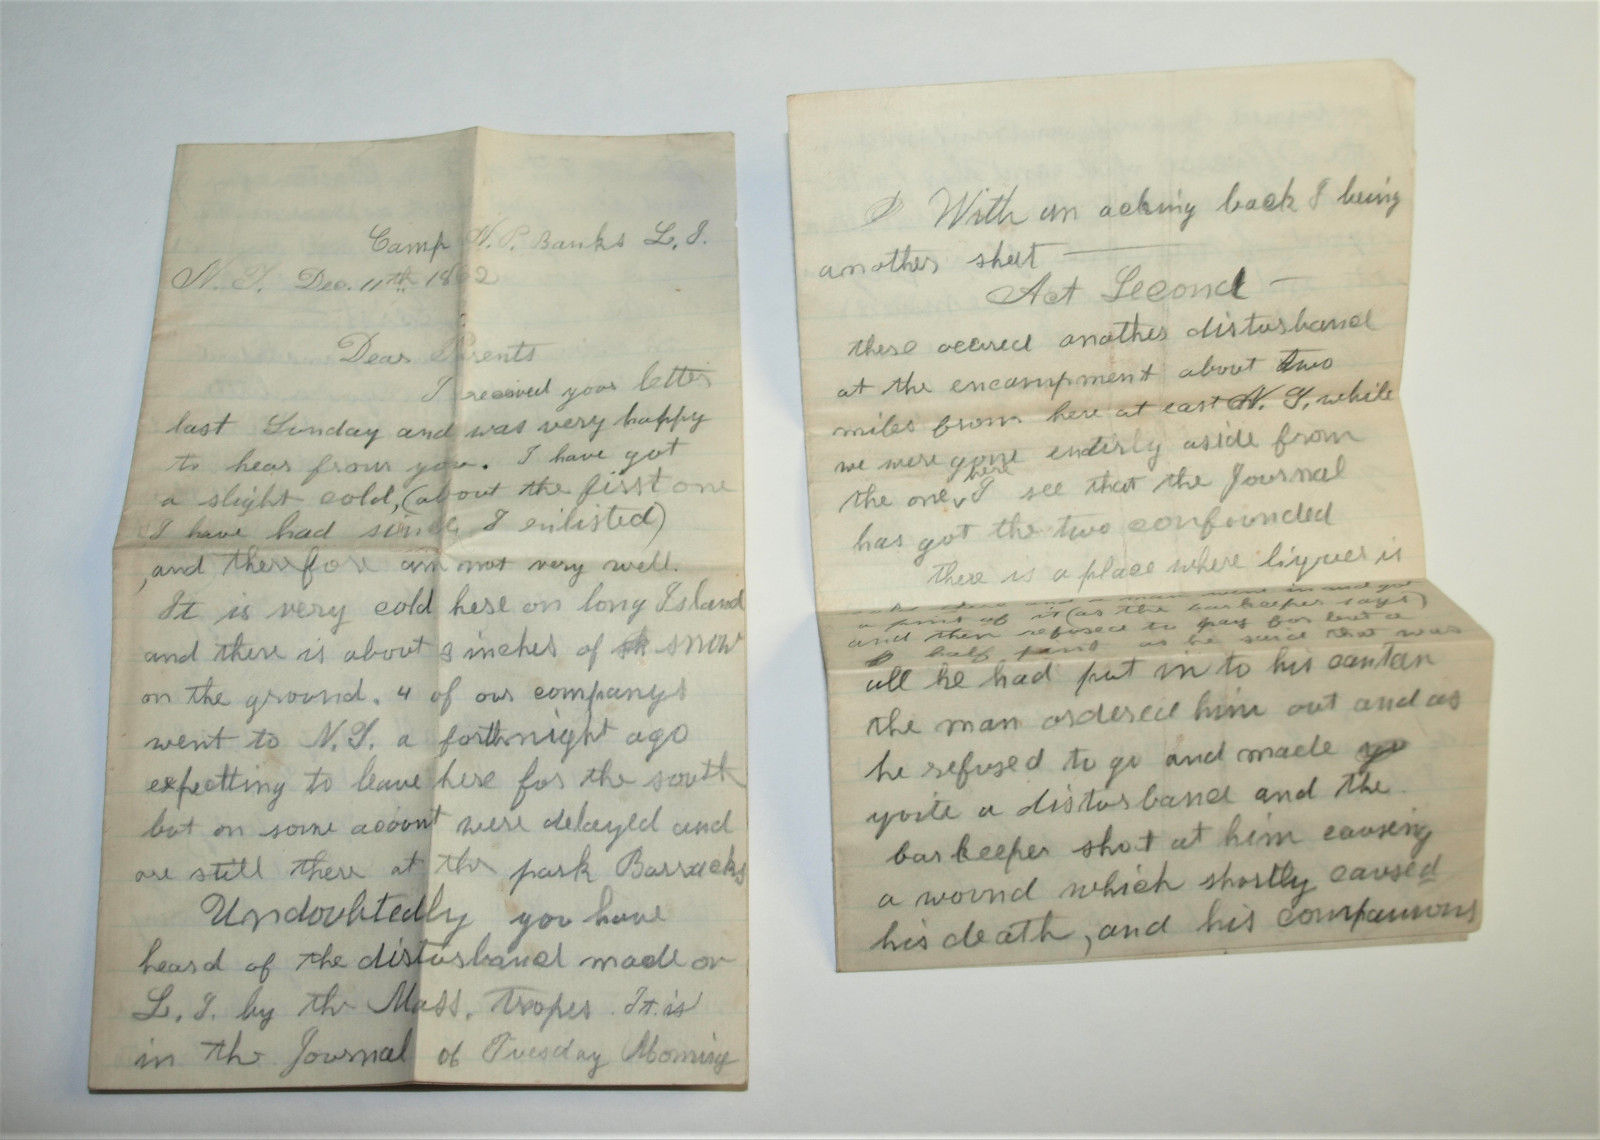 Camp N. P. Banks L. I.
N. Y. Dec. 11th 1862
Dear Parents
I received your letter
last Sunday and was very happy
to hear from you. I have got
a slight cold, (about the first one
I have had since I enlisted)
, and therefore am not very well.
It is very cold here on long Island
and there is about 3 inches of snow
on the ground. 4 of our companys
went to N. Y. a forthnight ago
expectting to leave here for the south
but on some acount were delayed and
are still there at the park Barracks
Undoubtedly you have
heard of the disturbance made on
L. I. by the Mass. tropes. It is
in the Journal of Tuesday Morning
With an acking back I being
another sheet
Act Second
there occured another disturbance
at the encampment about two
miles from here at east N. Y. while
we were gone entirly aside from
the one here I see that the Journal
has got the two confounded
there is a place where liquer is
and a man went in and got
a pint of it (as the barkeeper says)
and then refused to pay for but a
half pint as he said that was
all he had put in to his cantan
the man ordered him out and as
he refused to go and made
quite a disturbance and the
barkeeper shot at him causing
a wound which shortly caused
his death, and his companions